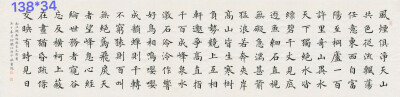 138*34
風煙俱淨天山
共色從流飄蕩
任意東西自富
陽至桐廬一百
許里奇山異水
天下獨絕水皆
縹碧千丈見底
遊魚細石直視
無礙急湍甚箭
猛浪若奔夾岸
高山皆生寒樹
負勢競上互相
軒邈爭高直指
千百成峰泉水
激石泠泠作響
好鳥相鳴嚶嚶
成韻蟬則千轉
不窮猿則百叫
無絕鳶飛戾天
者望峰息心經
綸世務者窺谷
忘反橫柯上蔽
在晝猶昏疏條
交映有時見日